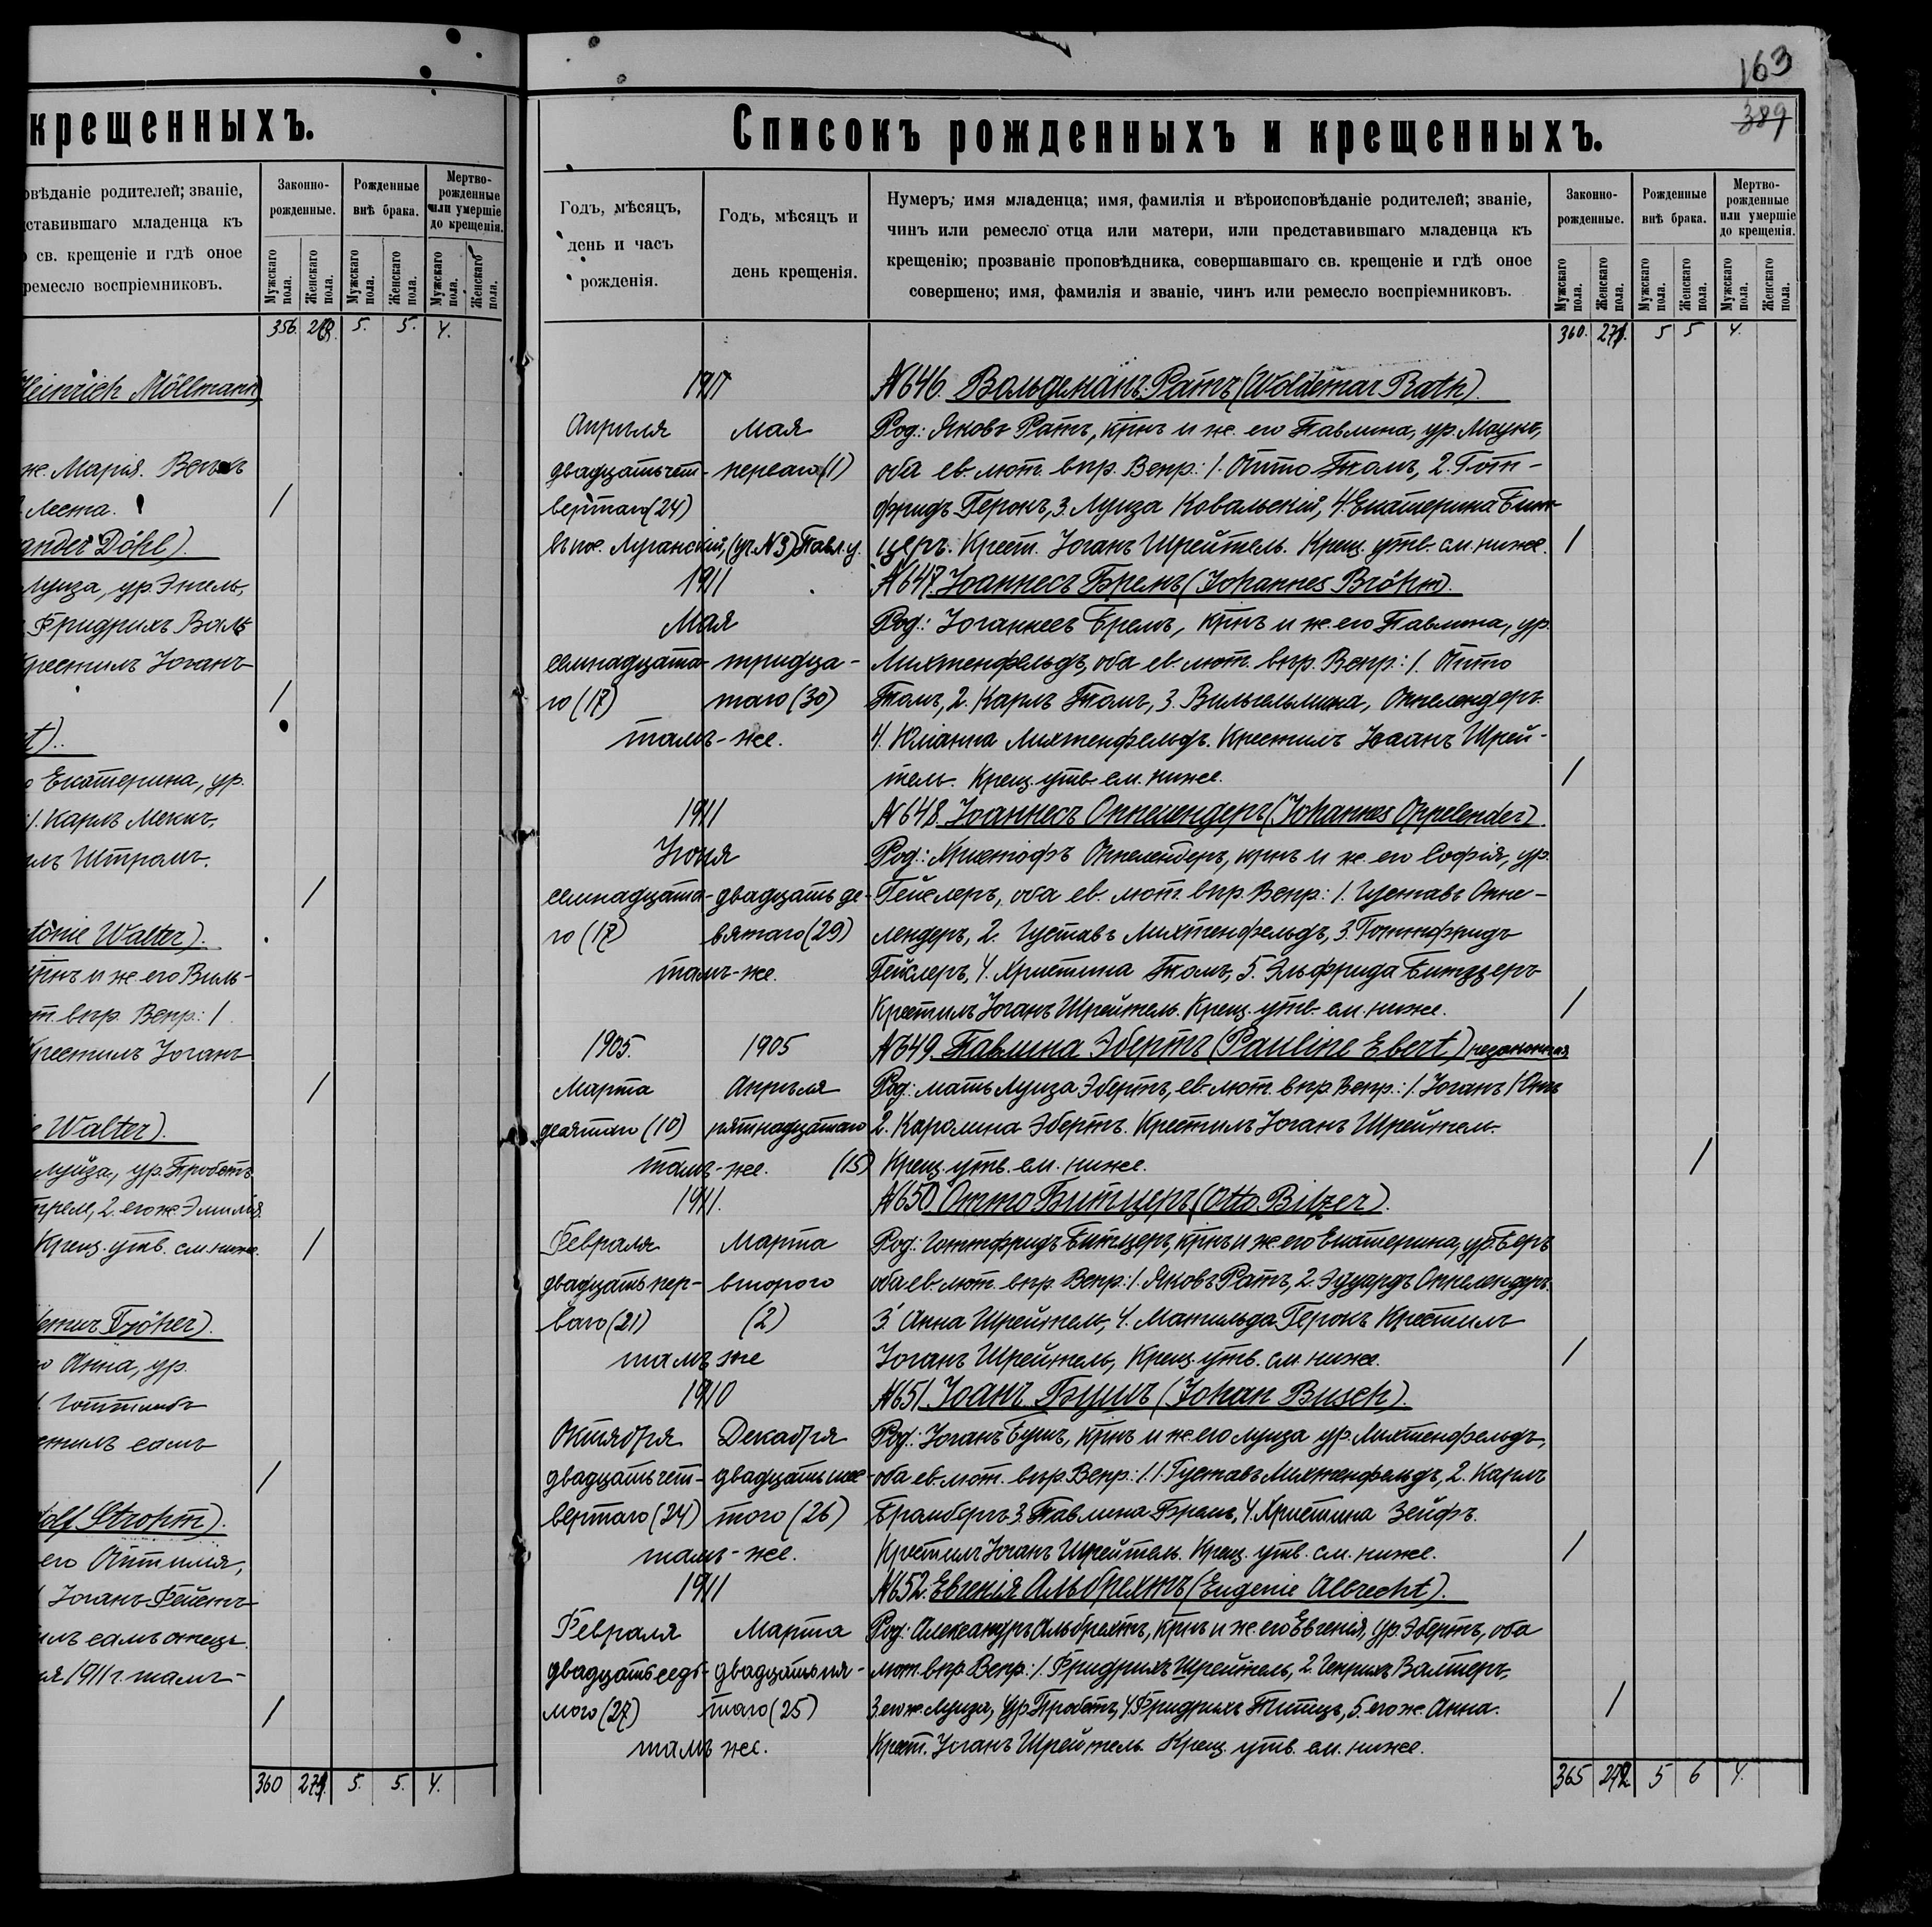 крещенныхъ.
овѣданіе родителей; званіе,
дставившаго младенца къ
о св. крещеніе и гдѣ оное
ремесло воспріемниковъ.
Законно-
рожденные.
Рожденные
внѣ брака.
Мертво-
рожденные
или умершіе
до крещенія.
Мужскаго пола.
Женскаго пола.
Мужскаго пола.
Женскаго пола.
Мужскаго пола.
Женскаго пола.
356. 5. 5. 4.
Heinrich Möllmann)
же. Марія.
/
ander Döhl).
Луиза, ур. Энгель,
Фридрихъ Валь
Крестилъ Іоганъ
/
t).
о Екатерина, ур.
1. Карлъ
илъ Штромъ.
/
tonie Walter).
крнъ и ж. его Виль-
от. впр. Вспр.: 1
Крестилъ Іоганъ
/
e Walter).
Луиза, ур. Пробстъ
2. его ж. Эмилія.
Крещ. утв. см. ниже.
/
о Анна, ур.
1. Готтлибъ
стилъ самъ
/
dolf Strohm).
его Оттилія,
1. Іоганъ
илъ самъ отецъ.
ая 1911 г. тамъ-
/
360 271. 5. 5. 4.
163
389
Списокъ рожденныхъ и крещенныхъ.
Годъ, мѣсяцъ,
день и часъ
рожденія.
Годъ, мѣсяцъ и
день крещенія.
Нумеръ; имя младенца; имя, фамилія и вѣроисповѣданіе родителей; званіе,
чинъ или ремесло отца или матери, или представившаго младенца къ
крещенію; прозваніе проповѣдника, совершавшаго св. крещеніе и гдѣ оное
совершено; имя, фамилія и званіе, чинъ или ремесло воспріемниковъ.
Законно-
рожденные.
Рожденные
внѣ брака.
Мертво-
рожденные
или умершіе
до крещенія.
Мужскаго пола.
Женскаго пола.
Мужскаго пола.
Женскаго пола.
Мужскаго пола.
Женскаго пола.
360. 271. 5 5 4.
1911 №646. Вольдемаръ Ратъ (Woldemar Rath).
Апрѣля Мая Род.: Яковъ Ратъ, крнъ и ж. его Павлина, ур. Маунъ,
двадцать чет- перваго (1) оба ев. лют. впр. Вспр.: 1. Отто Томъ, 2. Гот-
вертаго (24) фридъ Геронъ, 3. Луиза Ковальскій, 4. Екатерина Бит-
въ пос. Луганскій, (уч. №3) Павл. у. церъ. Крест. Іоганъ Шрейтель. Крещ. утв. см. ниже. /
1911 №647. Іоаннесъ Бремъ (Johannes Bröhm).
Мая Род.: Іоганнесъ Бремъ, крнъ и ж. его Павлина, ур.
семнадцата- тридца- Лихтенфельдъ, оба ев. лют. впр. Вспр.: 1. Отто
го (17) таго (30) Томъ, 2. Карлъ Томъ, 3. Вильгельмина, Оппелендеръ.
тамъ-же. 4. Юліанна Лихтенфельдъ. Крестилъ Іоганъ Шрей-
тель. Крещ. утв. см. ниже. /
1911 №648. Іоаннесъ Оппелендеръ (Johannes Oppelender).
Іюня Род.: Христофъ Оппелендеръ, крнъ и ж. его Софія, ур.
семнадцата- двадцать де- Гейслеръ, оба ев. лют. впр. Вспр.: 1. Густавъ Оппе-
го (17) вятаго (29) лендеръ, 2. Густавъ Лихтенфельдъ, 3. Готтфридъ
тамъ-же. Гейслеръ, 4. Христина Томъ, 5. Эльфрида Битцеръ
Крестилъ Іоганъ Шрейтель. Крещ. утв. см. ниже. /
1905. 1905 №649. Павлина Эбертъ (Pauline Ebert) незаконная
Марта Апрѣля Род.: мать Луиза Эбертъ, ев. лют. впр. Вспр.: 1. Іоганъ
десятаго (10) пятнадцатаго 2. Каролина Эбертъ. Крестилъ Іоганъ Шрейтель.
тамъ-же. (15) Крещ. утв. см. ниже. /
1911. №650 Отто Битцеръ (Otto Bitzer).
Февраля Марта Род.: Готтфридъ Битцеръ, крнъ и ж. его Екатерина, ур. Беръ
двадцать пер- второго оба ев. лют. впр. Вспр.: 1. Яковъ Ратъ, 2. Эдуардъ Оппелендеръ.
ваго (21) (2) 3. Анна Шрейтель, 4. Матильда Геронъ Крестилъ
тамъ же Іоганъ Шрейтель, Крещ. утв. см. ниже. /
1910 №651 Іоанъ Бушъ (Johan Busch).
Октября Декабря Род.: Іоганъ Бушъ, крнъ и ж. его Луиза ур. Лихтенфельдъ,
двадцать чет- двадцать шес- оба ев. лют. впр. Вспр.: 1. Густавъ Лихтенфельдъ, 2. Карлъ
вертаго (24) того (26) Брамбергъ 3. Павлина Бремъ, 4. Христина Зейфъ.
тамъ-же. Крестилъ Іоганъ Шрейтель. Крещ. утв. см. ниже. /
1911 №652. Евгенія Альбрехтъ (Eugenie Albrecht).
Февраля Марта Род.: Александръ Альбрехтъ, крнъ и ж. его Евгенія, ур. Эбертъ, оба
двадцать седь- двадцать пя- лют. впр. Вспр.: 1. Фридрихъ Шрейтель, 2. Генрихъ Вальтеръ,
мого (27) таго (25) 3. его ж. Луиза, ур. Пробстъ, 4. Фридрихъ Титицъ, 5. его ж. Анна. /
тамъ же. Крест. Іоганъ Шрейтель. Крещ. утв. см. ниже.
365 272 5 6 4.